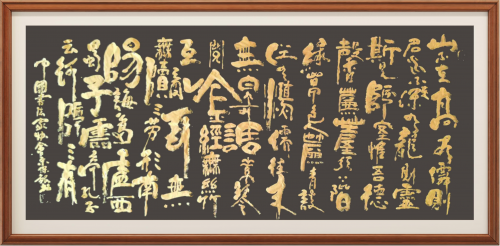 山不在高有僊則
名水不在深有龍則靈
斯是陋室惟吾德
馨苔痕上階
綠草色入簾青談
笑有鴻儒往來
無白丁可以調素琴
閱金經無絲竹
之亂耳無
牘之勞形南
陽諸葛廬西
蜀子雲亭孔子
云何陋之有
中國書法家協會